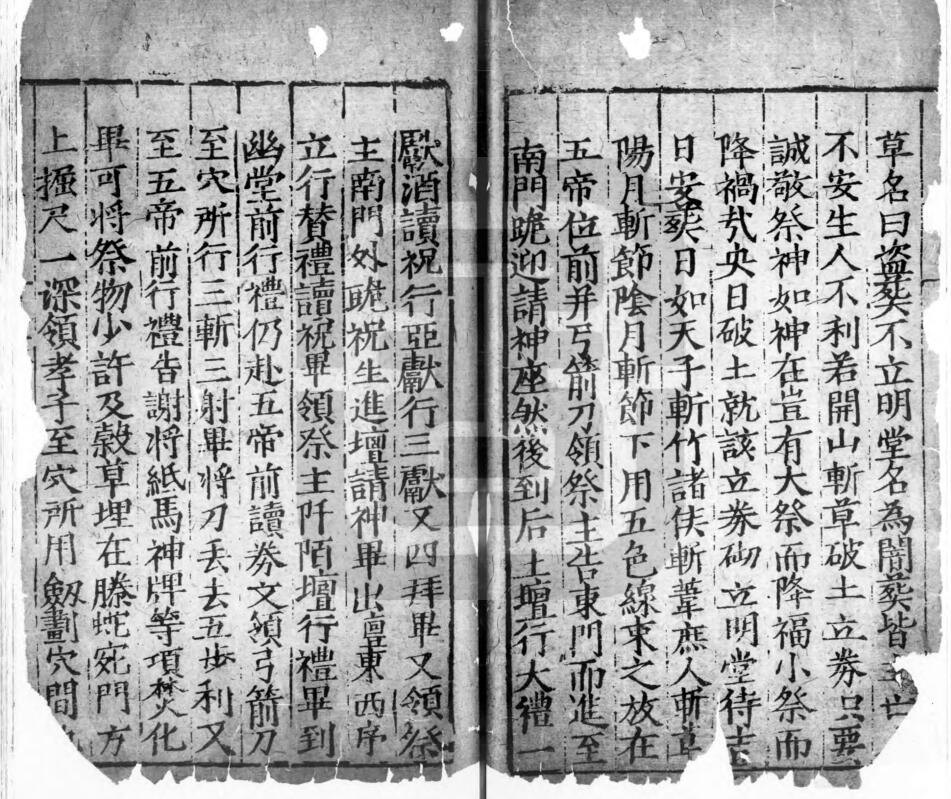 草名曰盜葬不立明堂名為闇葬皆
不安生人不利若開山斬草破土立券只要
誠敬祭神如神在豈有大祭而降福小祭而
降禍㢤央日破土就該立券砌立明堂待
日安葬日如天子斬竹諸侯斬葦庶人斬草
陽月斬節陰月斬節下用五色線束之放在
五帝位前并弓箭刀領祭主告東門而進至
南門跪迎請神座然後到后土壇行大禮一
獻酒讀祝行亞獻行三獻又四拜畢又領祭
主南門外跪祝生進壇請神畢出壇東西序
立行賛禮讀祝畢領祭主阡陌壇行禮畢到
幽堂前行禮仍赴五帝前讀券文領弓箭刀
至穴所行三斬三射畢將刀丢去五步利又
至五帝前行禮告謝將紙馬神牌等項焚化
畢可將祭物少許及穀草埋在螣蛇宛門方
上掘尺一深領孝子至穴所用劔劃穴間